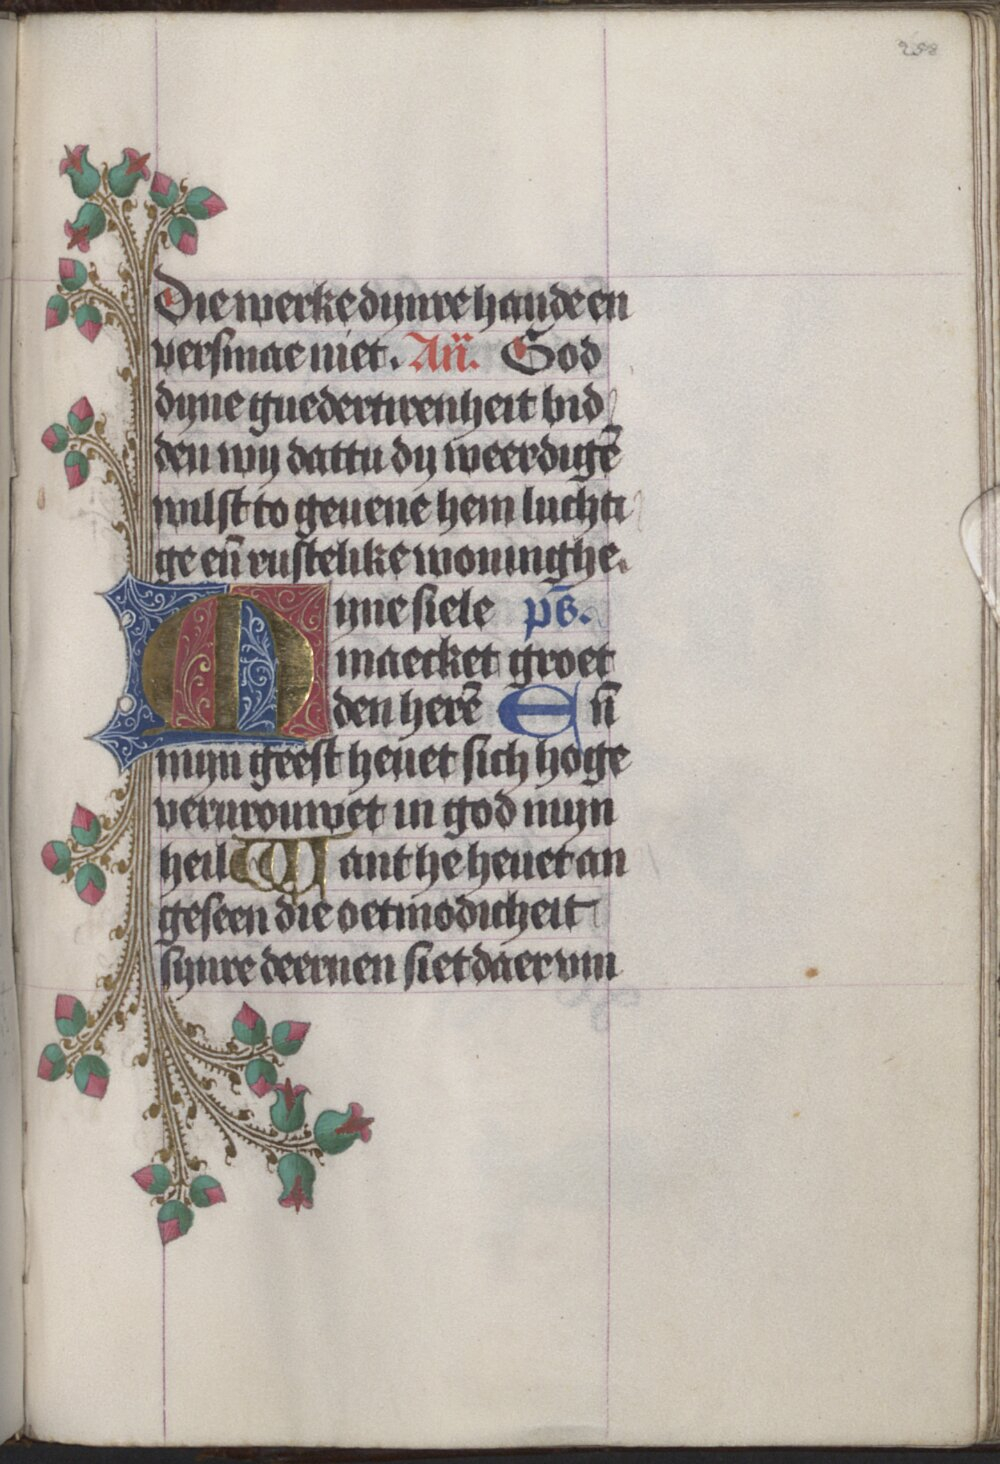 258
Die werke dynre hande en
versmae niet. An̄. God
dyne guedertirenheit bid
den wy dattu dy weerdigē
wilst to geuene hem luchti
ge en̄ rustelike woninghe.
Myne siele ps̄.
maecket groet
den herē En̄
myn geest heuet sich hoge
vervrouwet in god myn
heil Want he heuet an
geseen die oetmodicheit
synre deernen siet daer vm